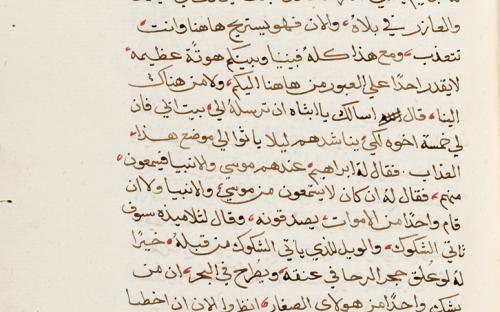 والعازر في بلاه والان فهو يستريح هاهنا وانت
تتعذب ومع هذا كله فبيننا وبينكم هوتة عظيمه
لا يقدر احدا علي العبور من هاهنا اليكم ولا من هناك
الينا قال اسالك يا ابتاه ان ترسله الي بيت ابي فان
لي خمسة اخوه لكي يناشدهم ليلا ياتوا الي موضع هذا
العذاب فقال له ابراهيم عندهم موسي والانبيا فيسمعون
منهم فقال له ان كان لا يسمعون من موسي والانبيا ولا ان
قام واحدا من الاموات يصدقونه وقال لتلاميذه سوف
تاتي الشكوك والويل للذي ياتي الشكوك من قبله خيرا
له لو علق حجر الرحا في عنقه ويطرح في البحر ان من
يشكك واحدا من هولاي الصغار انظروا الان ان اخطا